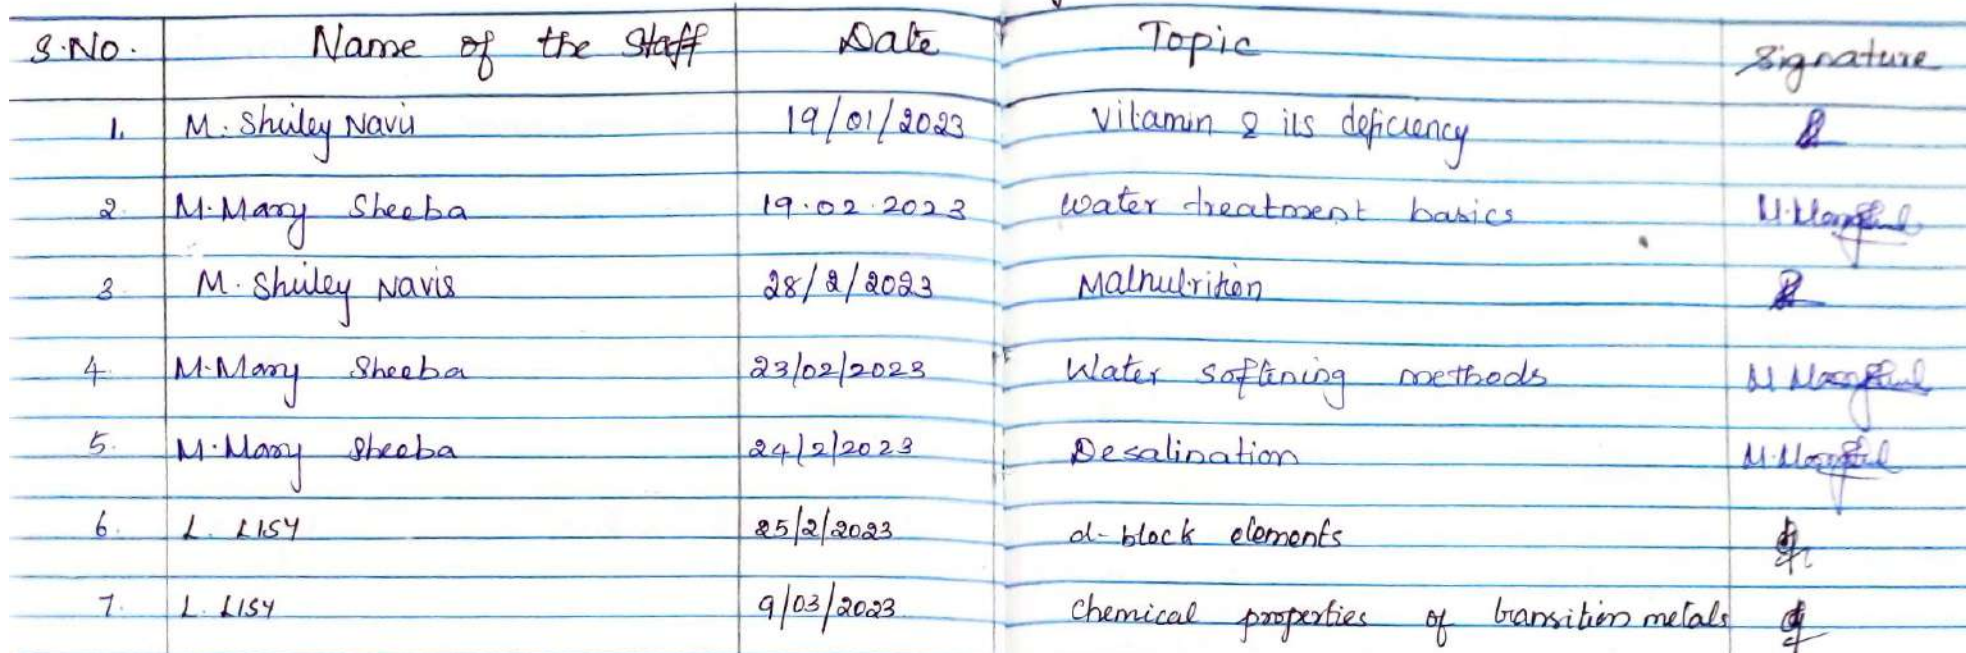 S.No. Name of the Staff Date Topic Signature
1. M. Shirley Navis 19/01/2023 Vitamin & its deficiency
2. M. Mary Sheeba 19.02.2023 Water treatment basics
3. M. Shirley Navis 28/2/2023 Malnutrition
4. M. Mary Sheeba 23/02/2023 Water softining methods
5. M. Mary Sheeba 24/2/2023 Desalination
6. L. LISY 25/2/2023 d-block elements
7. L. LISY 9/03/2023 Chemical properties of transition metals